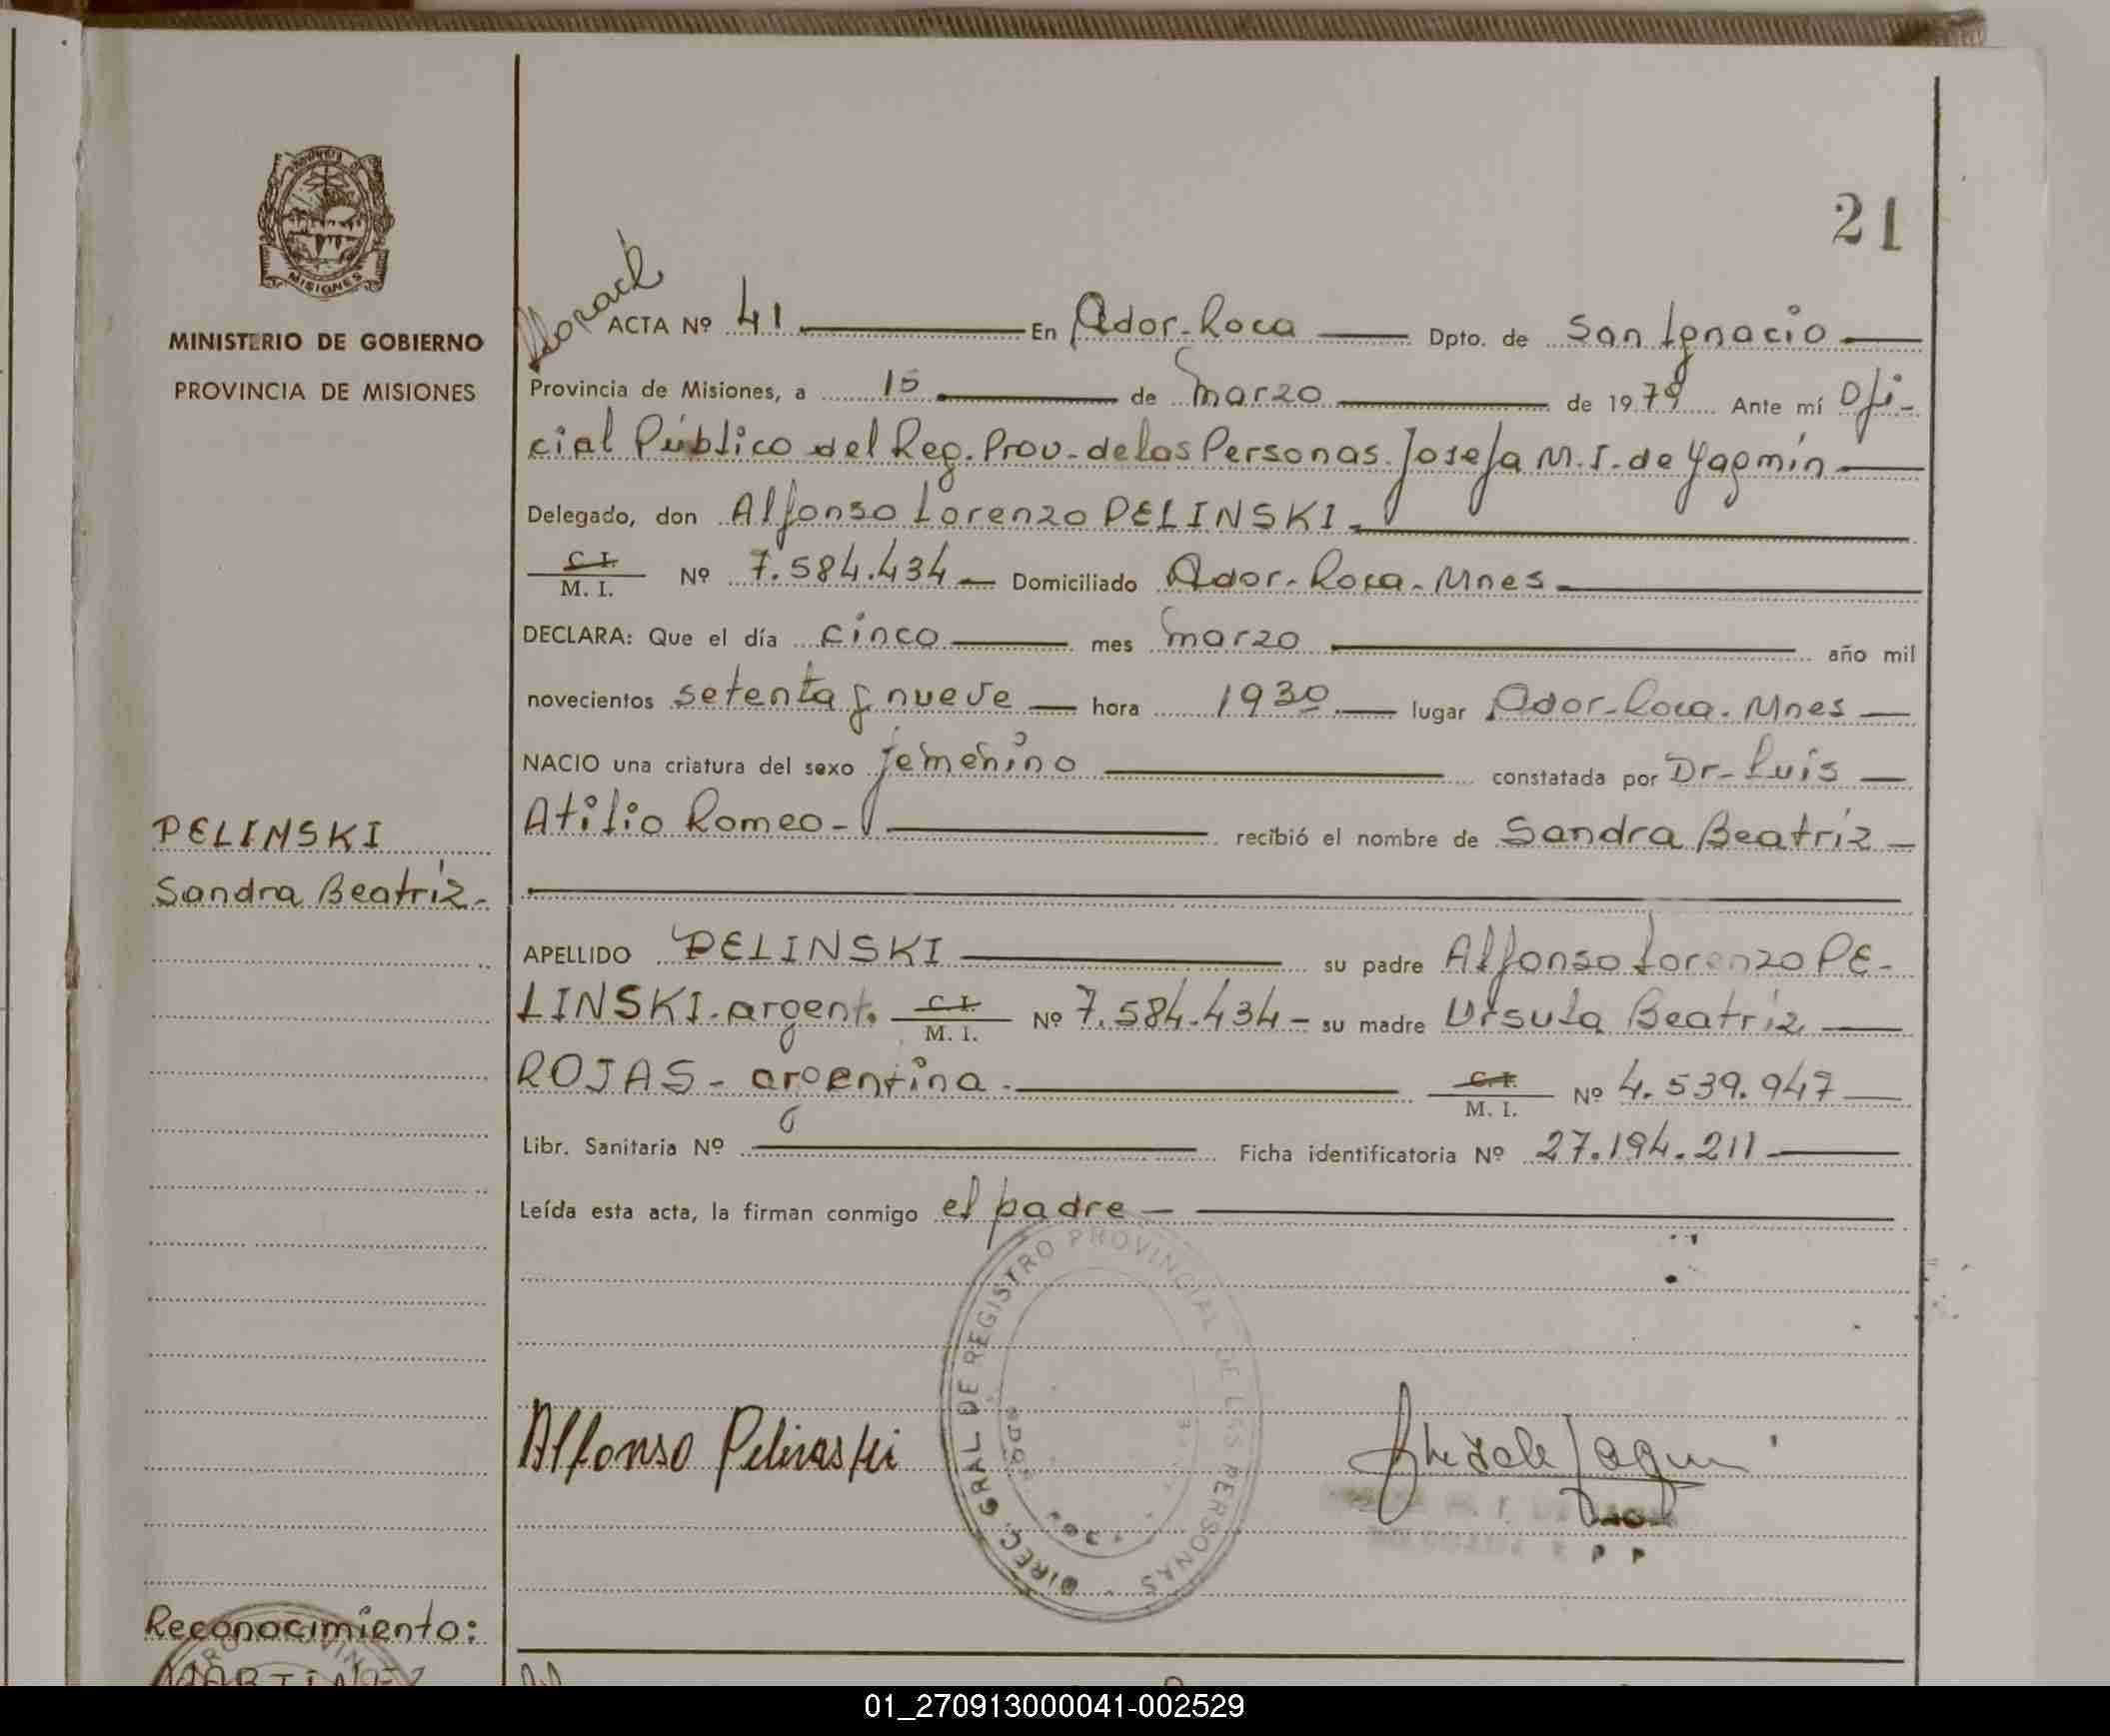 21
MISIONES
MINISTERIO DE GOBIERNO
PROVINCIA DE MISIONES
ACTA Nº 41 En Gdor-Roca Dpto. de San Ignacio
Provincia de Misiones, a 15 de Marzo de 1979 Ante mí Ofi-
cial Público del Reg. Prov. de las Personas. Josefa M. I. de Yagmin
Delegado, don Alfonso Lorenzo PELINSKI.
C. I.
M. I. Nº 7.584.434 Domiciliado Gdor-Roca-Mnes
DECLARA: Que el día cinco mes marzo año mil
novecientos setenta y nueve hora 1930 lugar Gdor-Roca. Mnes
NACIO una criatura del sexo femenino constatada por Dr- Luis
Atilio Romeo- recibió el nombre de Sandra Beatríz
PELINSKI
Sandra Beatríz-
APELLIDO PELINSKI su padre Alfonso Lorenzo PE-
LINSKI. argent. C. I. M. I. Nº 7.584.434- su madre Ursula Beatríz
ROJAS- argentina. C. I. M. I. Nº 4.539.947
Libr. Sanitaria Nº Ficha identificatoria Nº 27.194.211
Leída esta acta, la firman conmigo el padre
DIREC. GRAL DE REGISTRO PROVINCIAL DE LAS PERSONAS
Alfonso Pelinski
Reconocimiento:
01_270913000041-002529